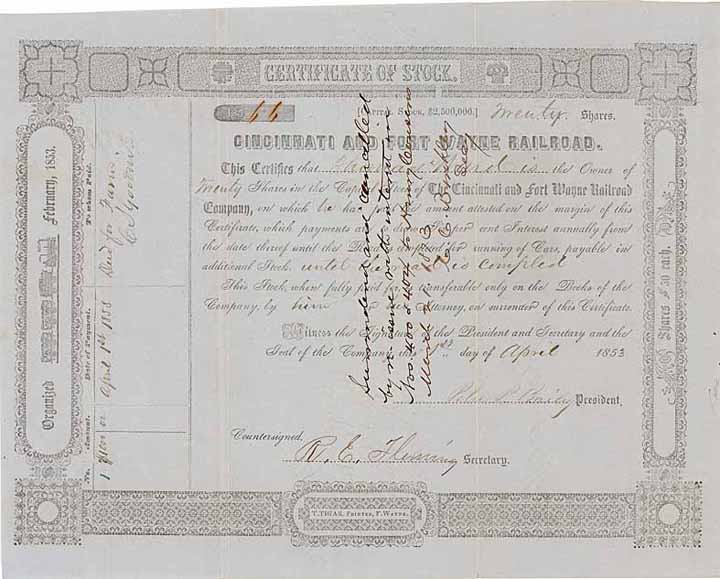 CERTIFICATE OF STOCK.
66 Capital Stock, $2,500,000. Twenty Shares.
CINCINNATI AND FORT WAYNE RAILROAD.
This Certifies that is the Owner of
Twenty Shares in the Capital Stock of The Cincinnati and Fort Wayne Railroad
Company, on which he has the amount attested on the margin of this
Certificate, which payments are per cent Interest annually from
the date thereof until the Road is completed for running of Cars, payable in
additional Stock. until is completed
This Stock, when fully paid for, transferable only on the Books of the
Company, by him or Attorney, on surrender of this Certificate.
Witness the Signature of the President and Secretary and the
Seal of the Company, this 1st day of April 1853
President,
Countersigned,
R. E. Fleming Secretary.
T. TIGAR, Printer, F. Wayne.
Organized February, 1853.
No. Amount. Date of Payment. To whom Paid.
1 April 1st 1853
Shares $50 each.
Surrendered and cancelled
by reissue with interest in
Nos. 400 & 404 to Henry
March